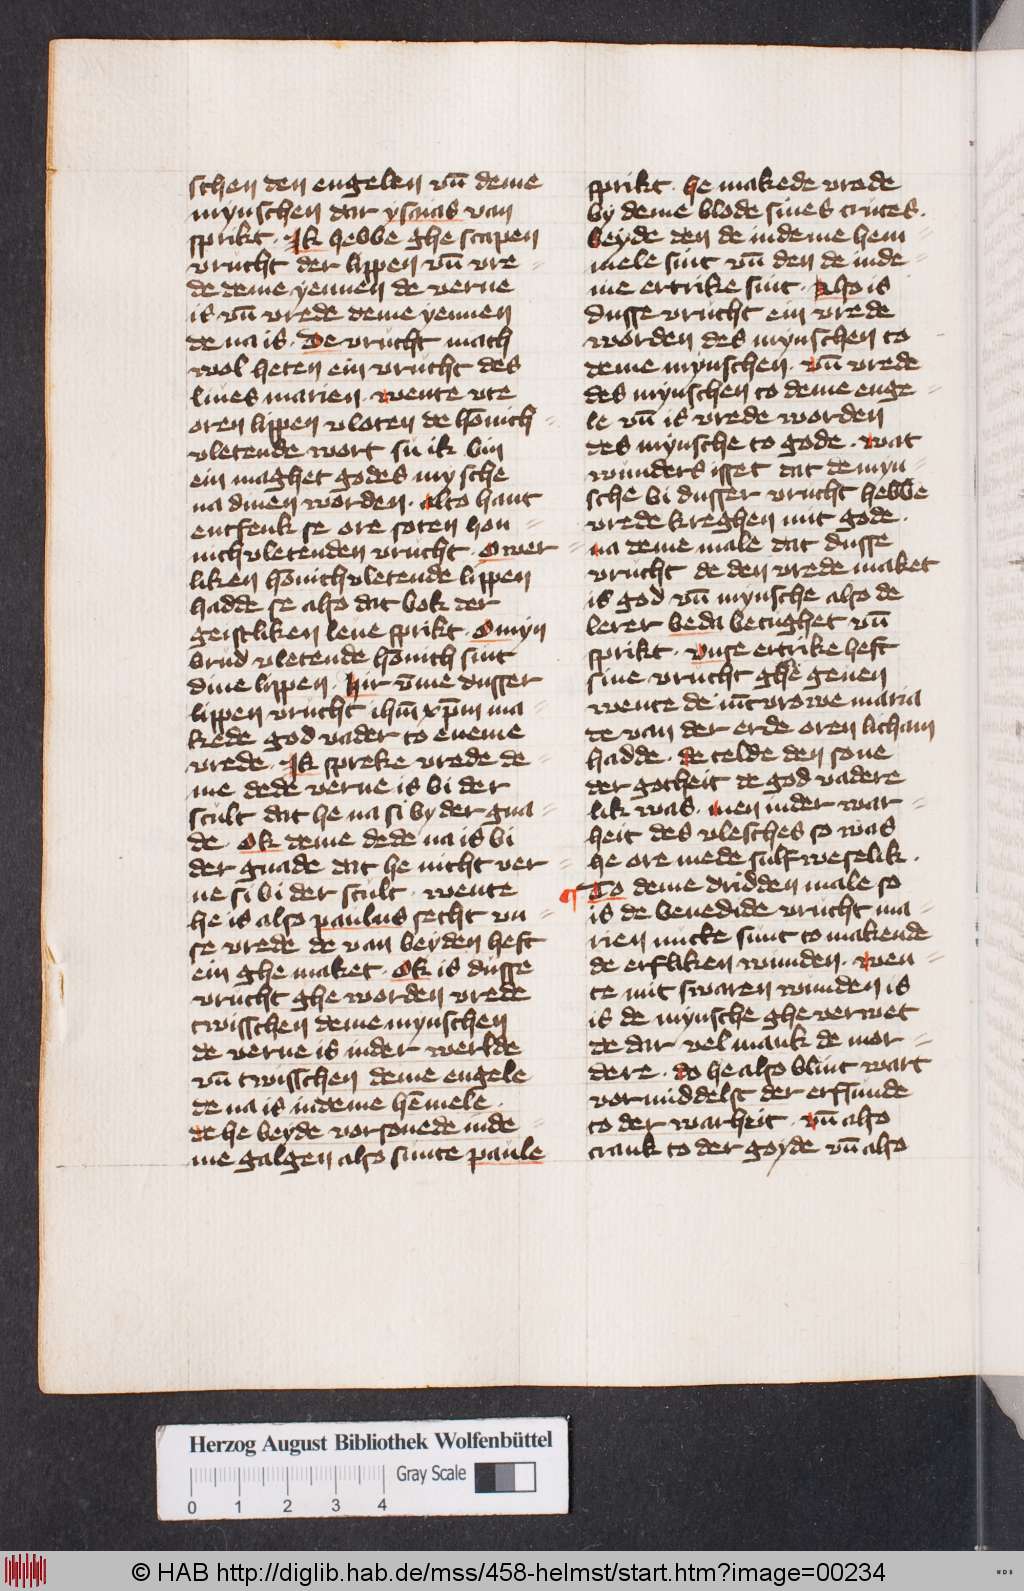 schen den engelen vn̄ deme
mynschen dar ysaias van
sprikt · Ik hebbe ghe scapen
vrucht der lippen vn̄ vre
de deme yennen de verne
is vn̄ vrede deme yennen
de na is · De vrucht mach
wol heten ein vrucht des
liues marien · wente vte
oren lippen vloten de hōnich
vletende wort su ik bin
ein maghet godes my sche
na dinen worden · alto hant
entfenk se ore soten hon
nich vletenden vrucht · Ower
liken hōnich vletende lippen
hadde se also dat bok der
geistliken leue sprikt · O myn
brud vletende hōnich sint
dine lippen · hir v̄me dusser
lippen vrucht ihm̄ xp̄m ma
kede god vader to eneme
vrede · Ik spreke vrede de
me dede verne is bi der
scult dat he na si by der gna
de · Ok deme dede na is bi
der gnade dat he nicht ver
ne si bi der scult · wente
he is also paulus secht vn
se vrede de van beyden heft
ein ghe maket · Ok is dusse
vrucht ghe worden vrede
twisschen deme mynschen
de verne is inder werlde
vn̄ twisschen deme engele
de na is indeme hēmele ·
de he beyde vorsonede inde
me galgen also sunte paule
sprikt · he makede vrede
by deme blode sines cruces ·
beyde den de indeme hem
mele sint vn̄ den de inde
me ertrike sint · Also is
dusse vrucht ein vrede
worden des mynschen to
deme mynschen · vn̄ vrede
des mynschen to deme enge
le vn̄ is vrede worden
des mynsche to gode · wat
wunders isset dat de myn
sche bi dusser vrucht hebbe
vrede kreghen mit gode ·
na deme male dat dusse
vrucht de den vrede maket
is god vn̄ mynsche also de
lerer beda betughet vn̄
sprikt · vnse ertrike heft
sine vrucht ghe geuen
wente de iūcvrowe maria
de van der erde oren licham
hadde · de telde den sone
der gotheit de god vadere
lik was · men inder war
heit des vlesches so was
he ore mede sulf weselik ·
¶ To deme dridden male so
is de benedide vrucht ma
rien nutte sunt to makende
de erfliken wunden · wen
te mit swaren wunden is
is de mynsche ghe verwet
de dar vel mank de mor
dere · do he also blint wart
vormiddelst der erfsunde
to der warheit · vn̄ also
crank to der goyde vn̄ also
Herzog August Bibliothek Wolfenbüttel
Gray Scale
0 1 2 3 4
© HAB http://diglib.hab.de/mss/458-helmst/start.htm?image=00234